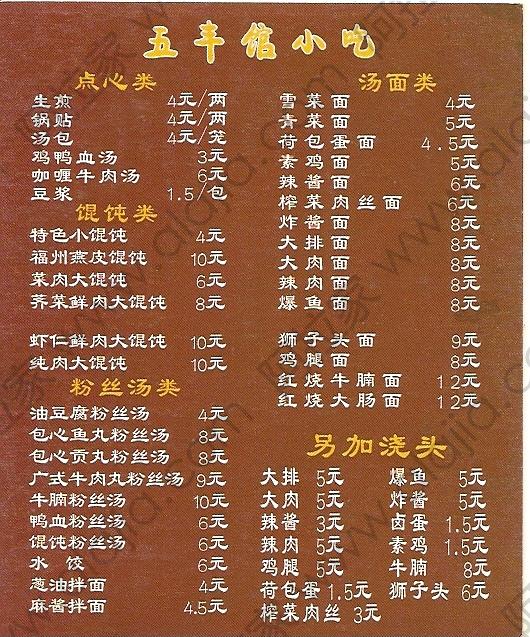 五丰馆小吃
点心类
生煎 4元/两
锅贴 4元/两
汤包 4元/笼
鸡鸭血汤 3元
咖喱牛肉汤 6元
豆浆 1.5/包
馄饨类
特色小馄饨 4元
福州燕皮馄饨 10元
菜肉大馄饨 6元
荠菜鲜肉大馄饨 8元
虾仁鲜肉大馄饨 10元
纯肉大馄饨 10元
粉丝汤类
油豆腐粉丝汤 4元
包心鱼丸粉丝汤 8元
包心贡丸粉丝汤 8元
广式牛肉丸粉丝汤 9元
牛腩粉丝汤 10元
鸭血粉丝汤 6元
馄饨粉丝汤 6元
水饺 6元
葱油拌面 4元
麻酱拌面 4.5元
汤面类
雪菜面 4元
青菜面 5元
荷包蛋面 4.5元
素鸡面 5元
辣酱面 6元
榨菜肉丝面 6元
炸酱面 8元
大排面 8元
大肉面 8元
辣肉面 8元
爆鱼面 8元
狮子头面 9元
鸡腿面 8元
红烧牛腩面 12元
红烧大肠面 12元
另加浇头
大排 5元 爆鱼 5元
大肉 5元 炸酱 5元
辣酱 3元 卤蛋 1.5元
辣肉 5元 素鸡 1.5元
鸡腿 5元 牛腩 8元
荷包蛋 1.5元 狮子头 6元
榨菜肉丝 3元